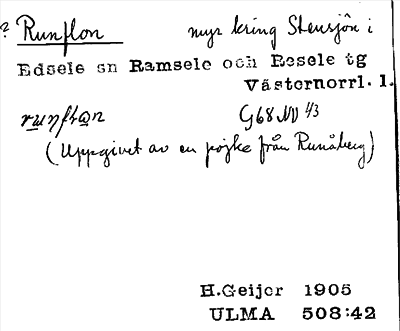 ? Runflon myr kring Stensjön i
Edsele sn Ramsele och Resele tg
Västernorrl. l.
runflon G68 NV 43
(Uppgivet av en pojke från Runåberg)
H.Geijer 1905
ULMA 508:42